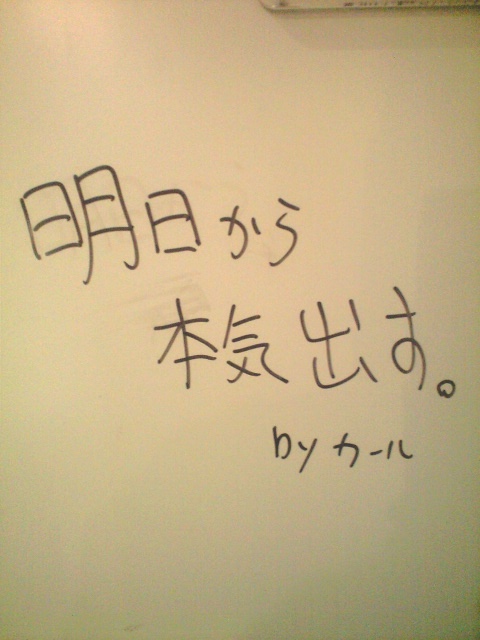 明日から
本気出す。
byカール